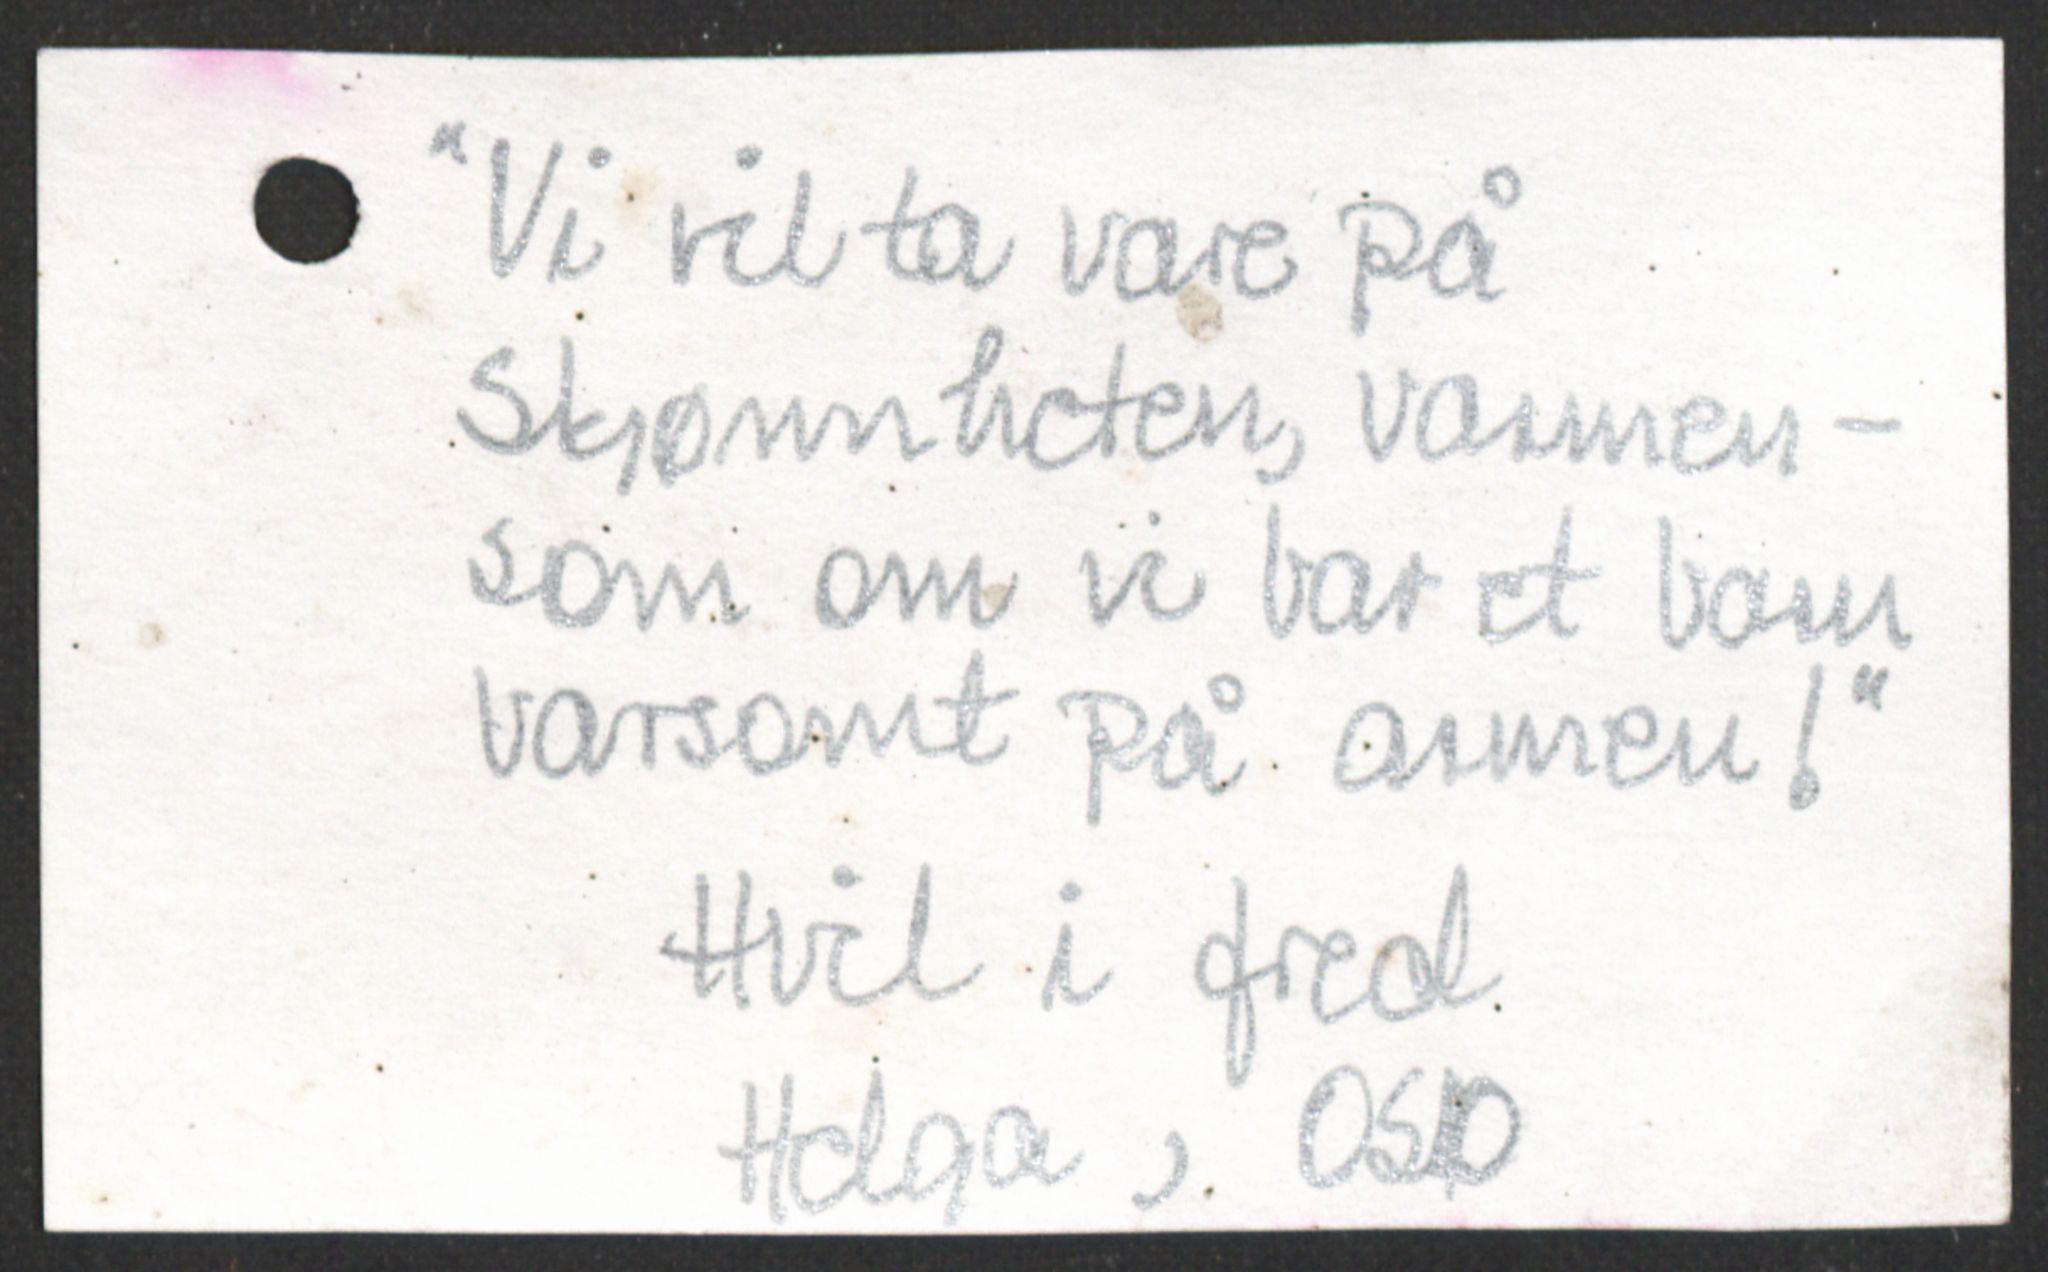 "Vi vil ta vare på
Skjønnheten, varmen -
som om vi bar et barn
varsomt på armen!"
Hvil i fred
Helga, OSLO